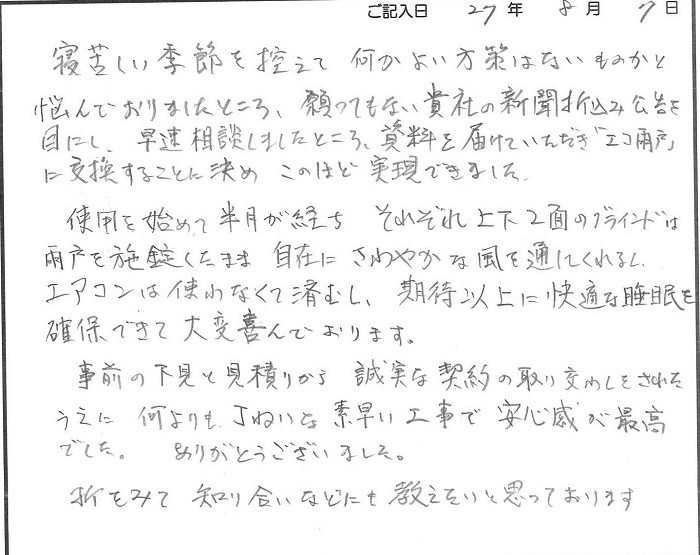 ご記入日 27年 8月 7日
寝苦しい季節を控えて 何かよい方策はないものかと
悩んでおりましたところ、願ってもない貴社の新聞折込み広告を
目にし、早速相談しましたところ、資料を届けていただき「エコ雨戸」
に交換することに決め このほど実現できました。
使用を始めて半月が経ち それぞれ上下2面のブラインドは
雨戸を施錠したまま 自在に さわやかな風を通してくれるし、
エアコンは使わなくて済むし、期待以上に快適な睡眠を
確保できて大変喜んでおります。
事前の下見と見積りから 誠実な契約の取り交わしをされた
うえに 何よりも、丁ねいな素早い工事で安心感が最高
でした。 ありがとうございました。
折をみて 知り合いなどにも教えたいと思っております